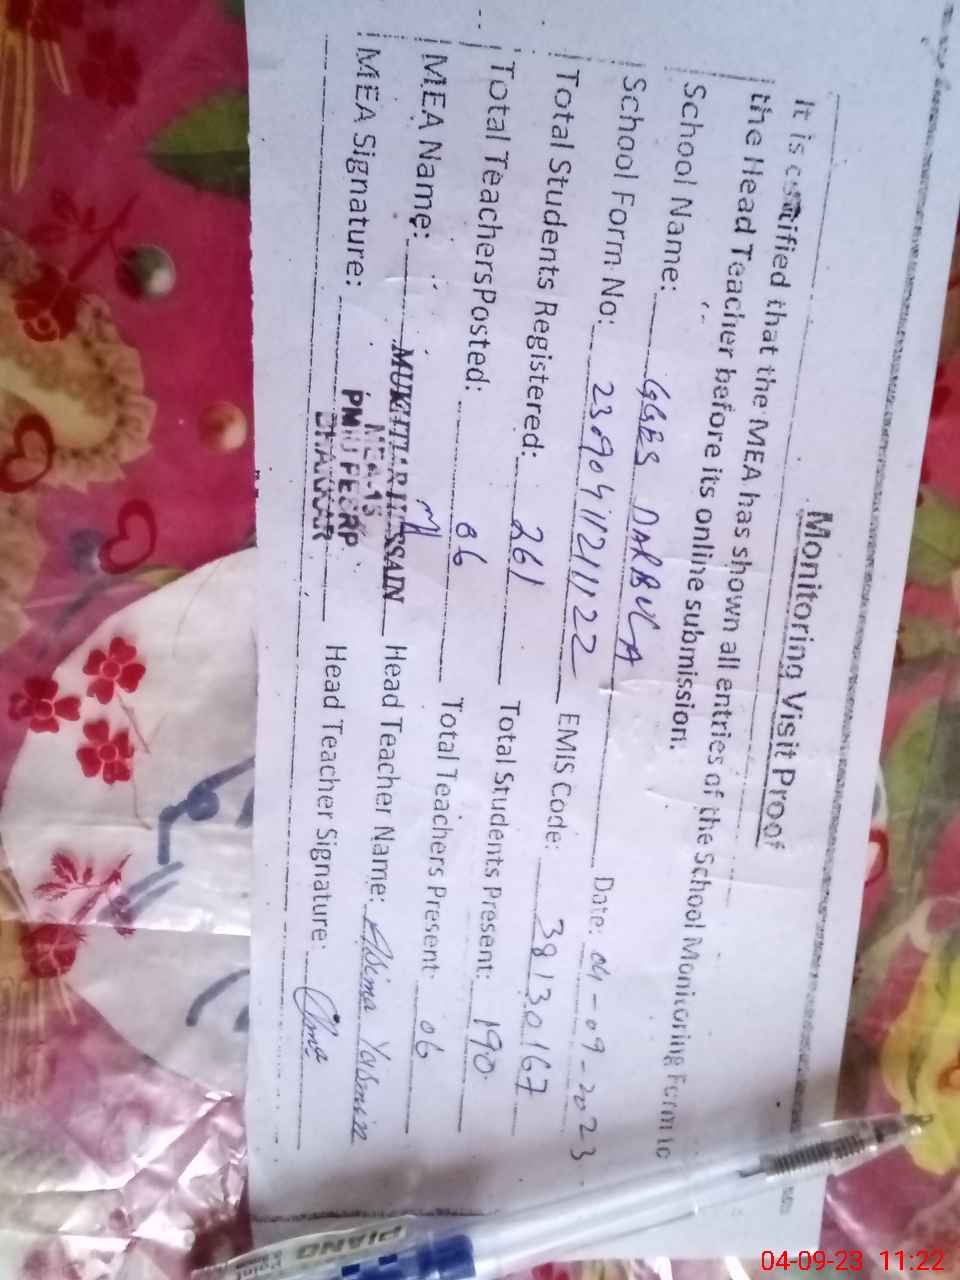 Monitoring Visit Proof
It is certified that the MEA has shown all entries of the School Monitoring Form to
the Head Teacher before its online submission.
School Name: GGES DARBULA Date: 04-09-2023
School Form No: 23090411211122 EMIS Code: 38130167
Total Students Registered: 261 Total Students Present: 190
Total Teachers Posted: 06 Total Teachers Present: 06
MEA Name: MUKHTAR HUSSAIN Head Teacher Name: Asima Yasmin
MEA Signature: MEA-15 Head Teacher Signature:
PMIU PESRP
PIANO
Point
04-09-23 11:22